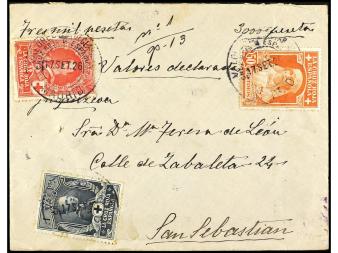 Tres mil pesetas nº 1 3000 pesetas
90-13
Valores declarados
17 SET. 26
17 SET. 26
Guipúzcoa
Sra Dª Mª Teresa de León
Calle de Zabaleta 24
San Sebastian